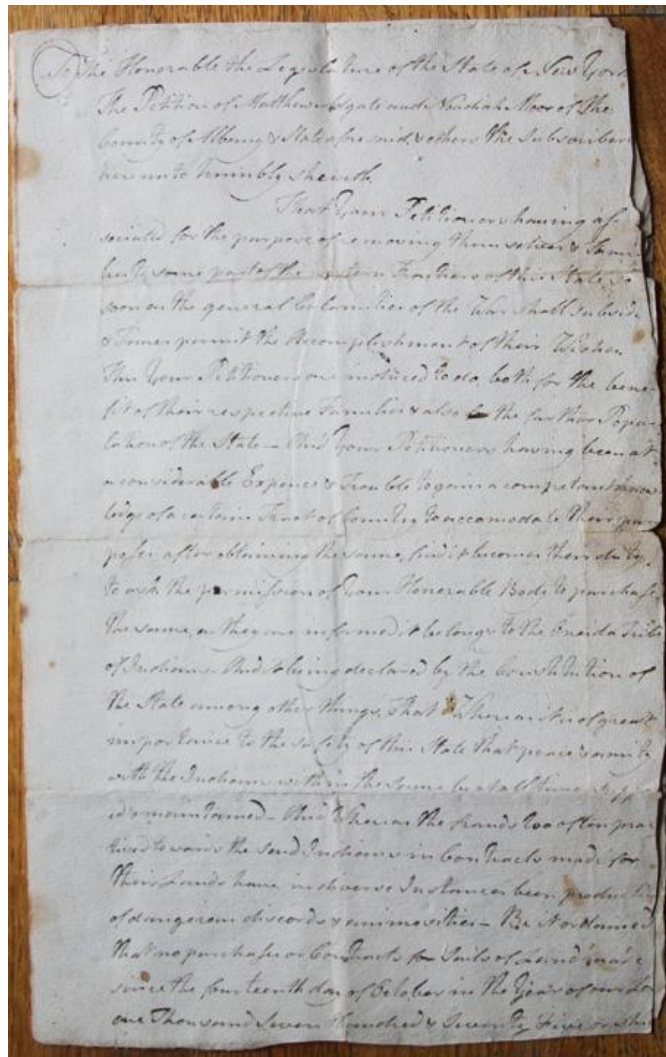 To the Honorable the Legislature of the State of New York
The Petition of Matthew Adgate and Noadiah Moor of the
County of Albany & State aforesaid, & others the Subscribers
hereunto humbly Sheweth,
That Your Petitioners having as
sociated for the purpose of removing themselves & Fami
lies to some part of the western Frontiers of this State, so
soon as the general Calamities of the War shall subside
& Times permit the Accomplishment of their Wishes
This Your Petitioners are induced to do, both for the bene
fit of their respective Families & also the further Popu
lation of the State — And Your Petitioners having been at
a considerable Expence & Trouble to gain a competent know
ledge of a certain Tract of Country to accomodate their pur
poses after obtaining the same, find it becomes their duty
to ask the permission of Your Honorable Body to purchase
the same, as they are informed it belongs to the Oneida Tribe
of Indians And it being declared by the Constitution of
the State among other things, That Whereas it is of great
importance to the safety of this State that peace & amity
with the Indians within the same be at all times supp
ed & maintained — And Whereas the frauds too often prac
ticed towards the said Indians in Contracts made for
their Lands have in diverse Instances been productive
of dangerous discords & animosities — Be it ordained
that no purchases or Contracts for Sails of Land made
since the fourteenth day of October in the Year of our Lord
one Thousand Seven Hundred & Seventy Five or